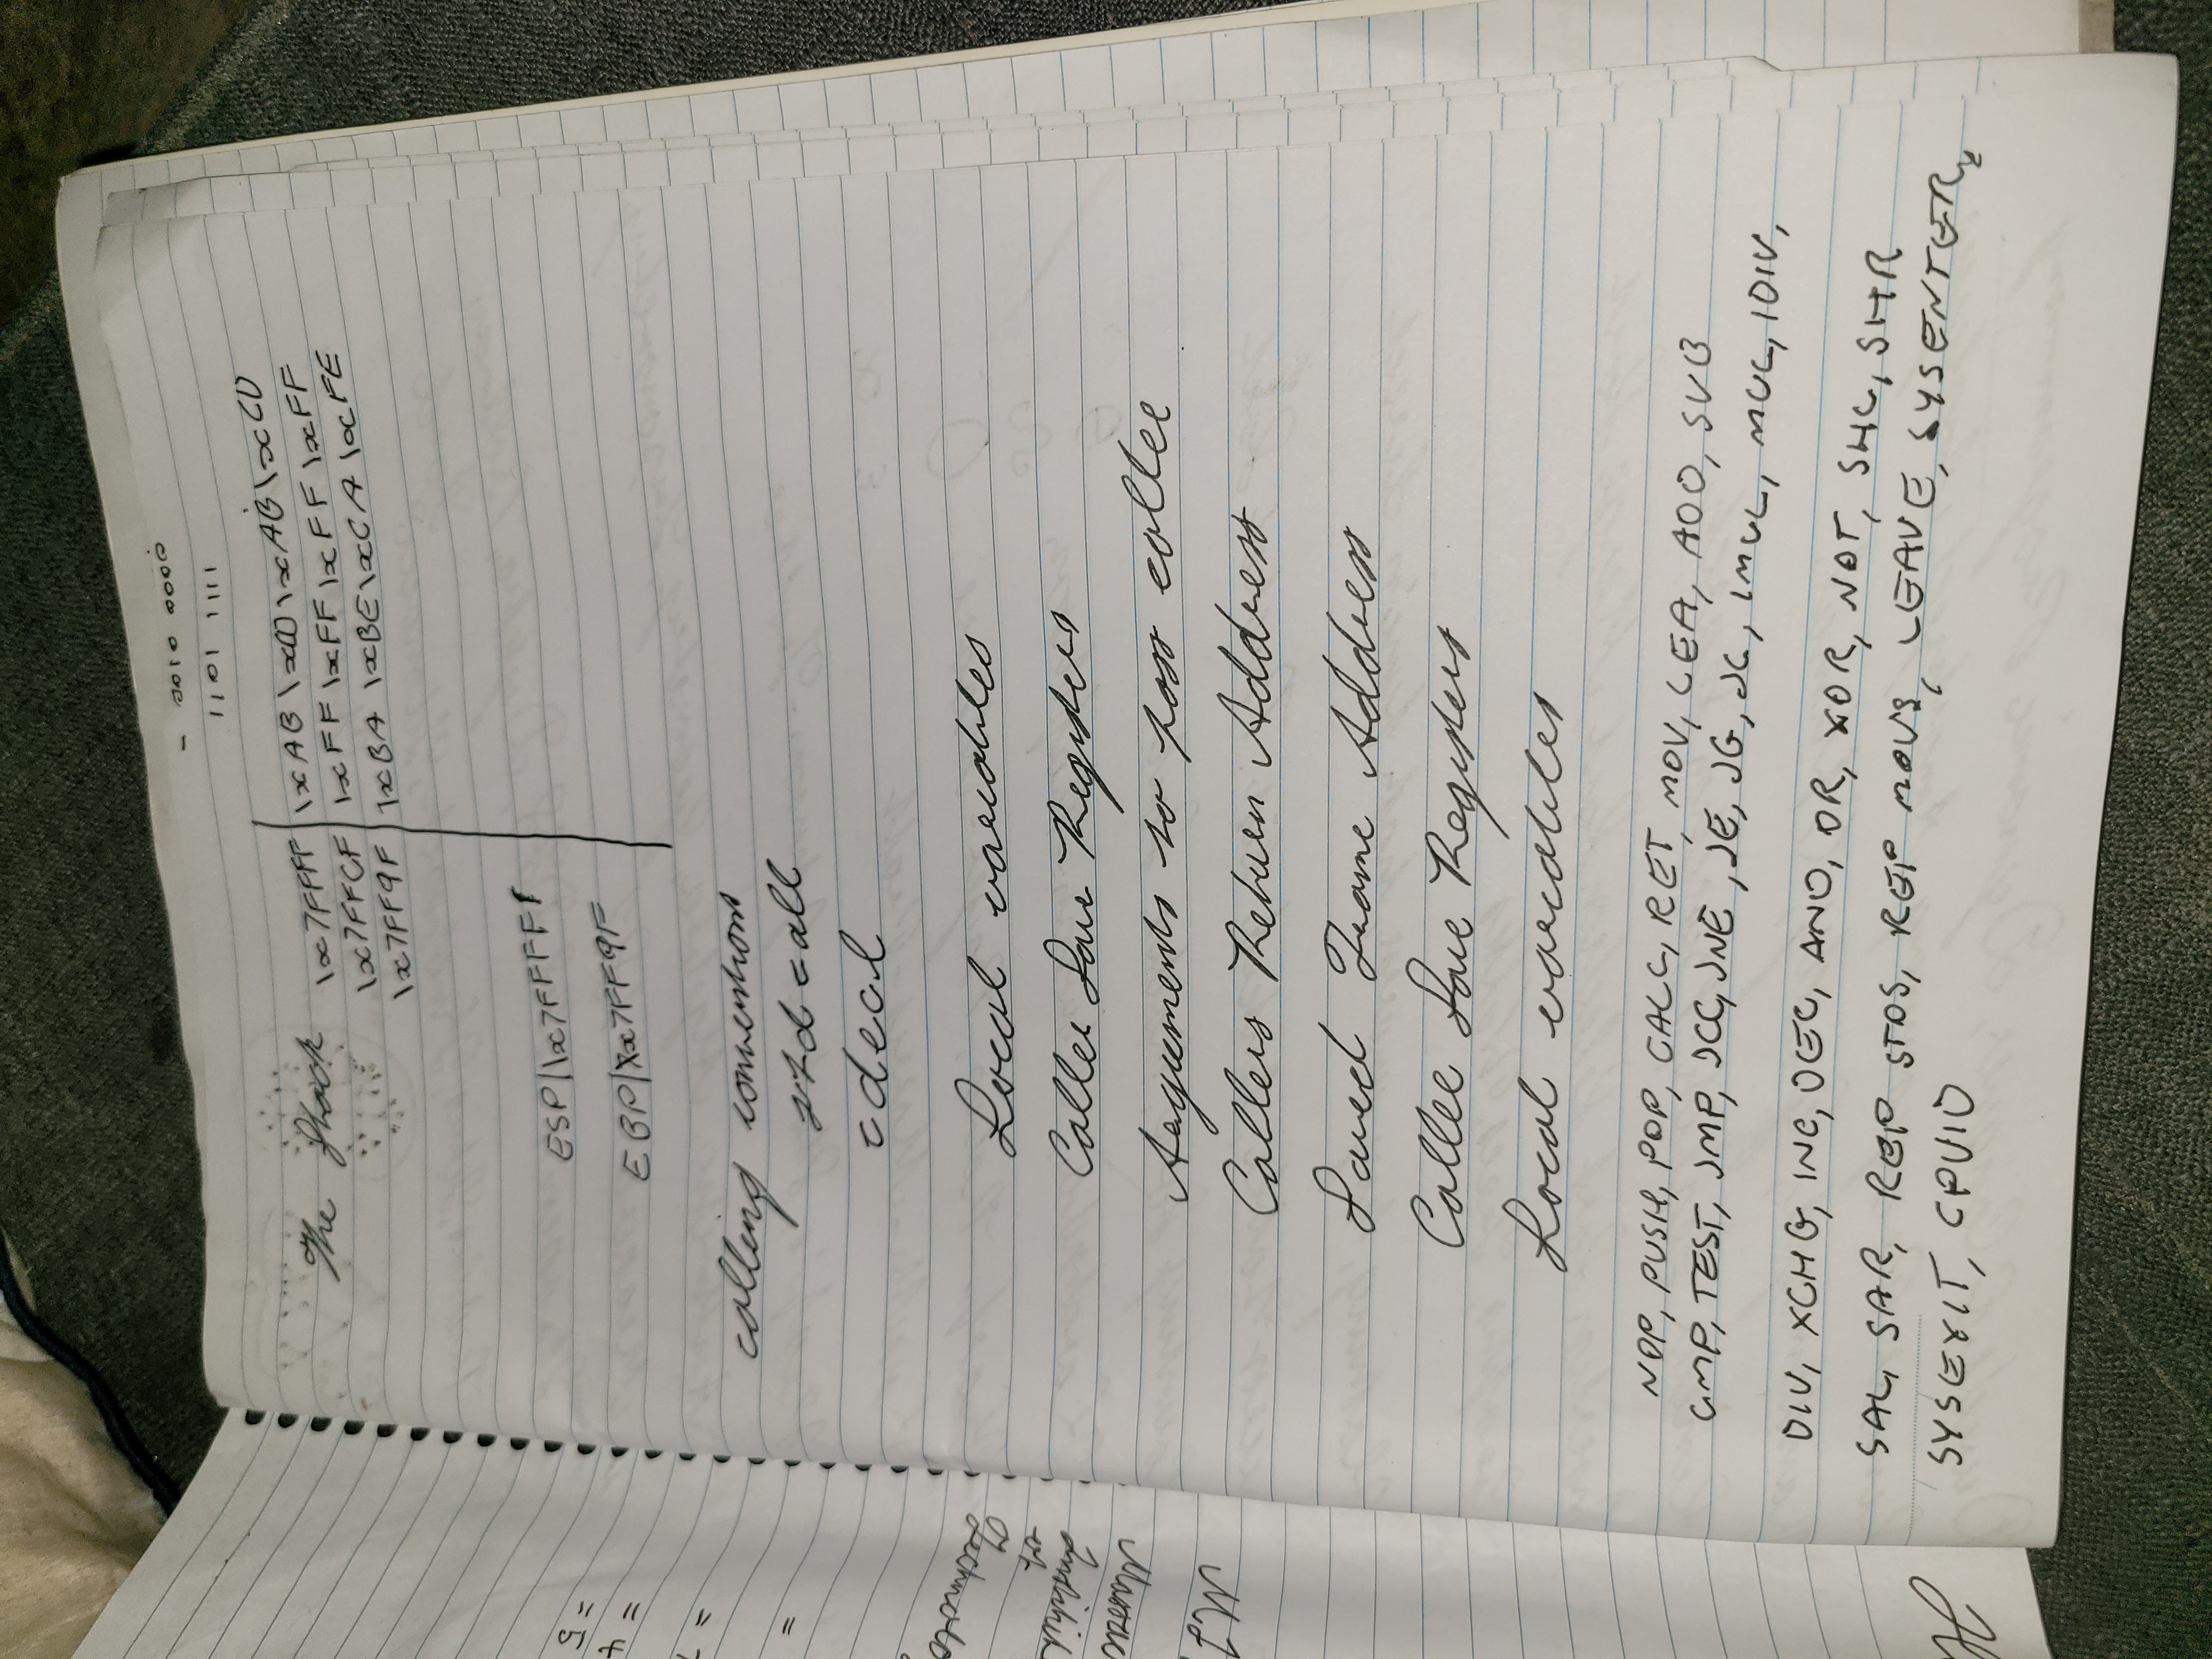 - 0010 0000
1101 1111
The Stack \x7FFFF \xAB \xCD \xAB \xCD
\x7FFCF \xFF \xFF \xFF \xFF
\x7FF9F \xBA \xBE \xCA \xFE
ESP|\x7FFFFF
EBP|\x7FF9F
calling conventions
std call
cdecl
Local variables
Caller Save Registers
Arguments to pass callee
Callers Return Address
Saved Frame Address
Callee Save Registers
Local variables
NOP, PUSH, POP, CALL, RET, MOV, LEA, ADD, SUB
CMP, TEST, JMP, JCC, JNE, JE, JG, JL, IMUL, MUL, IDIV,
DIV, XCHG, INC, DEC, AND, OR, XOR, NOT, SHL, SHR
SAL, SAR, REP STOS, REP MOVS, LEAVE, SYSENTER,
SYSEXIT, CPUID
= 5
= 7
=
of